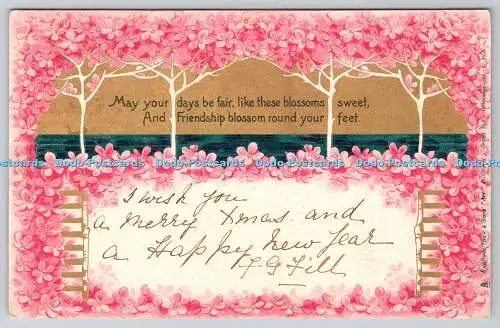 May your days be fair, like these blossoms sweet,
And Friendship blossom round your feet.
Dodo-Postcards Dodo-Postcards Dodo-Postcards Dodo-Postcards
I wish you
a Merry Xmas and
a Happy New Year
F G Fill